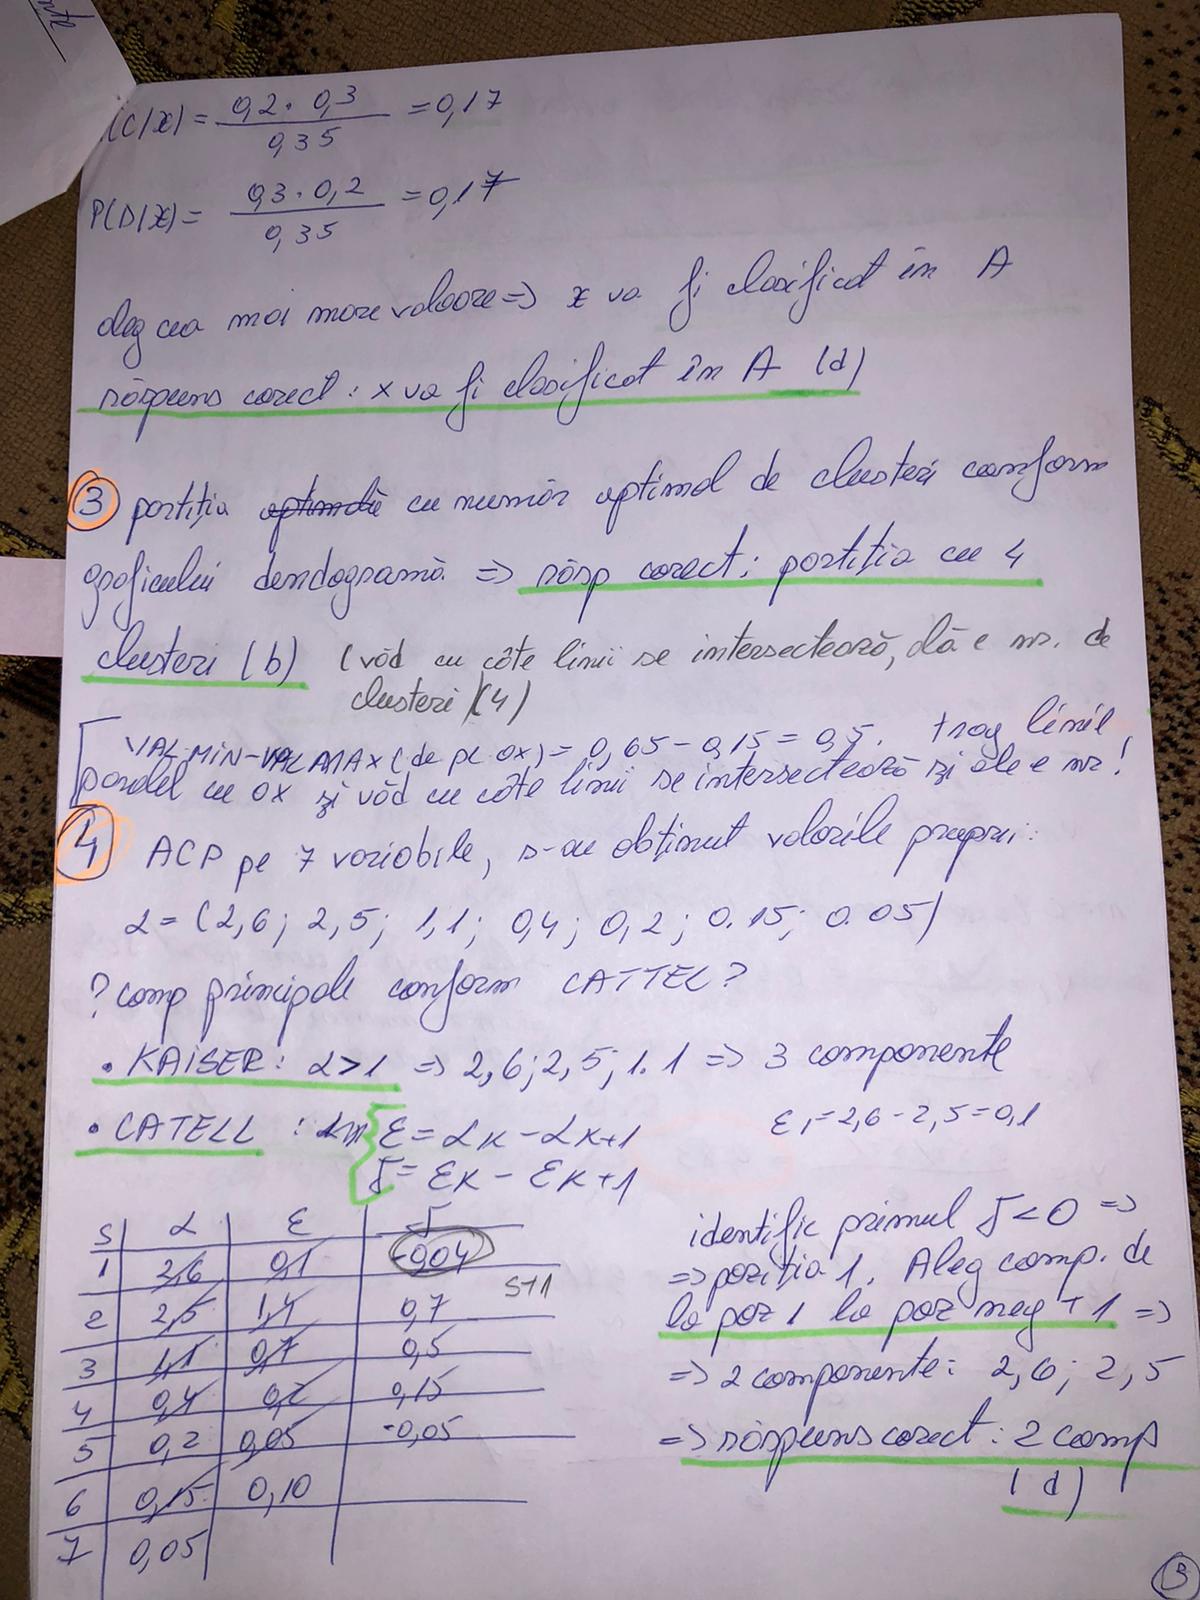 (C/x) = 0,2 · 0,3 / 0,35 = 0,17
P(D/x) = 0,3 · 0,2 / 0,35 = 0,17
aleg cea mai mare valoare => x va fi clasificat în A
răspuns corect : x va fi clasificat în A (d)
3 partiția optimală cu număr optimal de clusteri conform
graficului dendogramă => răsp corect : partiția cu 4
clusteri (b) (văd cu câte linii se intersectează, ăla e nr. de
clusteri (4)
VAL·MIN-VALMAX (de pe OX) = 0,65 - 0,15 = 0,5. trag linii
paralel cu OX și văd cu câte linii se intersectează și ăla e nr!
4 ACP pe 7 variabile, s-au obținut valorile proprii:
α = (2,6 ; 2,5 ; 1,1 ; 0,4 ; 0,2 ; 0.15 ; 0.05)
? comp principale conform CATTEL ?
• KAISER : α>1 => 2,6 ; 2,5 ; 1.1 => 3 componente
• CATELL : ε = αk - αk+1 ε1 = 2,6 - 2,5 = 0,1
Γ = εk - εk+1
S α ε Γ
1 2,6 0,1 -0,04
S+1
2 2,5 1,4 0,7
3 1,1 0,7 0,5
4 0,4 0,2 0,15
5 0,2 0,05 -0,05
6 0,15 0,10
7 0,05
identific primul Γ < 0 =>
=> poziția 1. Aleg comp. de
la poz 1 la poz neg + 1 =>
=> 2 componente : 2,6 ; 2,5
=> răspuns corect : 2 comp
(d)
3